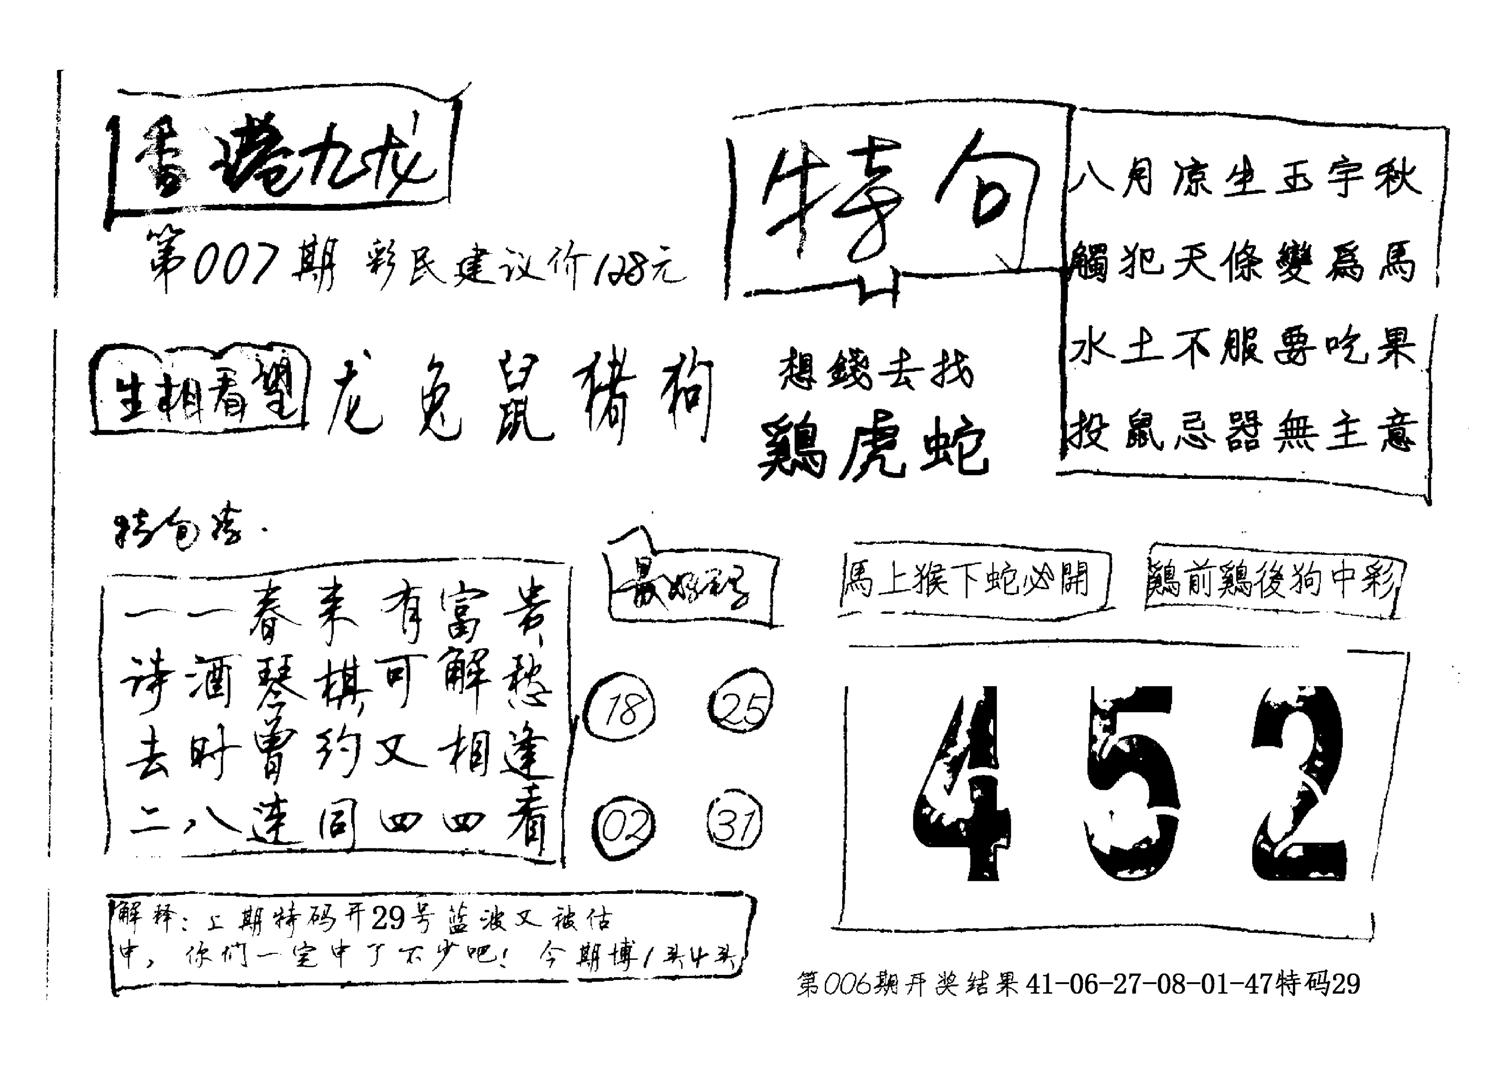 香港九龙
第007期 彩民建议价128元
特句
八月凉生玉宇秋
觸犯天條變爲馬
水土不服要吃果
投鼠忌器無主意
生相看望
龙兔鼠猪狗
想錢去找
鷄虎蛇
特句诗.
一一春来有富贵,
诗酒琴棋可解愁
去时曾约又相逢
二八连同四四看
最好码
18 25
02 31
馬上猴下蛇必開
鷄前鷄後狗中彩
452
解释:上期特码开29号蓝波又被估
中,你们一定中了不少吧!今期博1头4头
第006期开奖结果41-06-27-08-01-47特码29